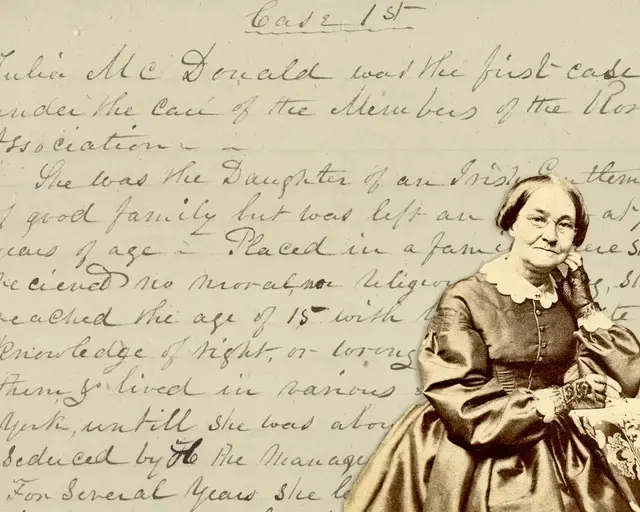 Case 1st
Julia Mc Donald was the first case
under the care of the Members of the Ros
Association
She was the Daughter of an Irish Gentlem
of good family but was left an at
years of age Placed in a fami ere s
recieved no moral, nor religiou g, s
reached the age of 15 with te
knowledge of right, or wrong
them lived in various
York, untill she was abou
seduced by the manag
For several years she l